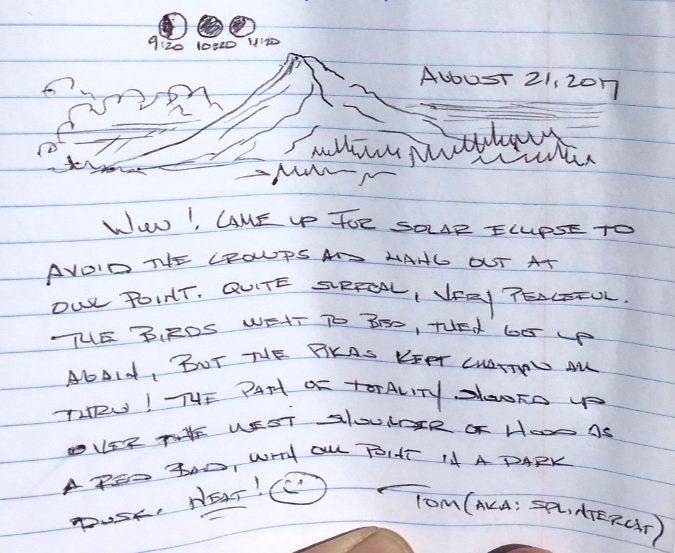 9:20 10:20 11:20
AUGUST 21, 2017
WOW! CAME UP FOR SOLAR ECLIPSE TO
AVOID THE CROWDS AND HANG OUT AT
OWL POINT. QUITE SURREAL, VERY PEACEFUL.
THE BIRDS WENT TO BED, THEN GOT UP
AGAIN, BUT THE PIKAS KEPT CHATTIN ALL
THRU! THE PATH OF TOTALITY SHOWED UP
OVER THE WEST SHOULDER OF HOOD AS
A RED BAND, WITH OWL POINT IN A DARK
DUSK. NEAT!
TOM (AKA: SPLINTERCAT)